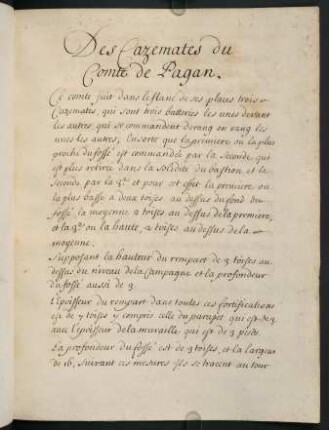 Des Cazemates du
Comte de Pagan.
Ce comte fait dans le flanc de ses places trois
Cazemates, qui sont trois batteries les unes devant
les autres, qui se commandent de rang en rang les
unes les autres, Ensorte que la premiere ou la plus
proche du fossé est commandée par la Seconde, qui
est plus retirée dans la solidité du bastion et la
Seconde par la 3.e et pour cet effet la premiere ou
la plus basse a deux toises au dessus du fond du
fossé, la moyenne 2 toises au dessus de la premiere,
et la 3.e ou la haute, 2 toises au dessus de la
moyenne.
Supposant la hauteur du rempart de 3 toises au
dessus du niveau de la Campagne et la profondeur
du fossé aussi de 3.
L'epoisseur du rempart dans toutes ces fortifications
est de 7 toises y compris celle du parapet qui est de 3
avec l'epoisseur de la muraille, qui est de 3 pieds.
La profondeur du fossé est de 3 toises, et la largeur
de 16, suivant ces mesures ils se tracent au tour